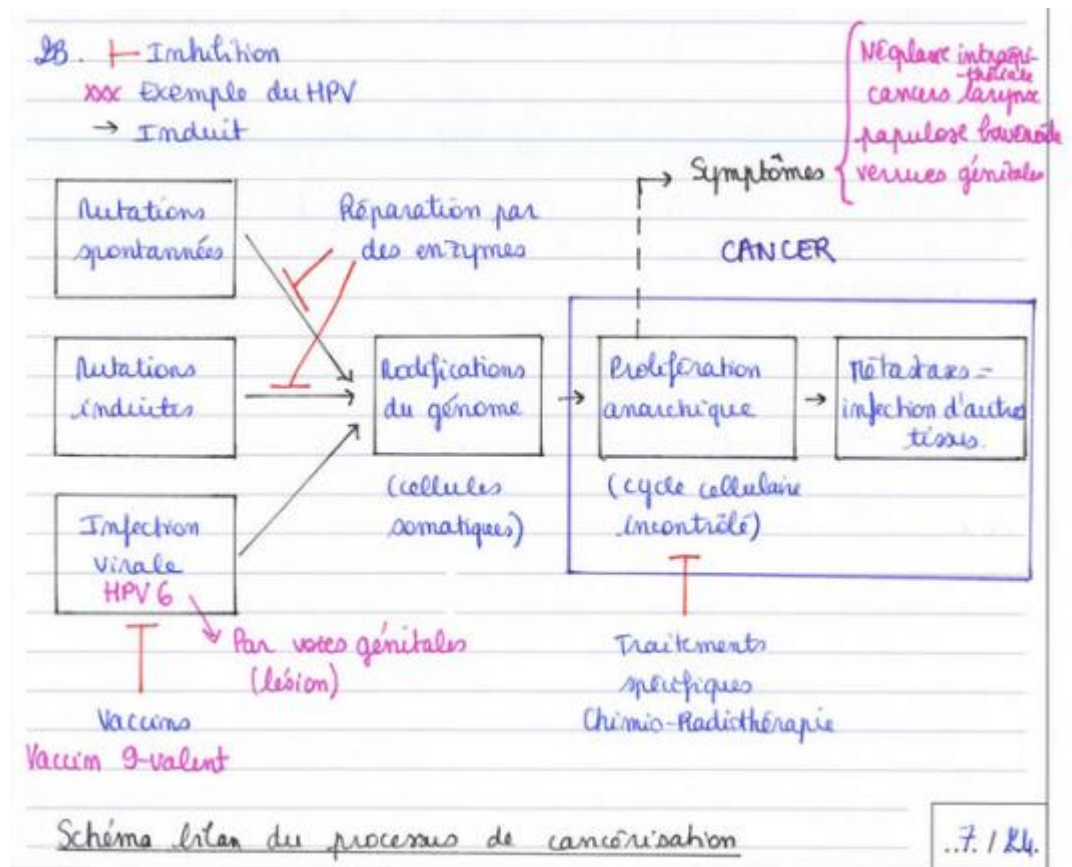 2B. Inhibition
xxx Exemple du HPV
→ Induit
Néoplasie intraépi-
théliale
cancers larynx
papulose bowenoïde
verrues génitales
Symptômes
Mutations
spontannées
Réparation par
des enzymes
CANCER
Mutations
induites
Modifications
du génome
(cellules
somatiques)
Prolifération
anarchique
(cycle cellulaire
incontrôlé)
Métastases =
infection d'autres
tissus.
Infection
virale
HPV 6
Par voies génitales
(lésion)
Vaccins
Vaccin 9-valent
Traitements
spécifiques
Chimio-Radiothérapie
Schéma bilan du processus de cancérisation
..7. / 24.